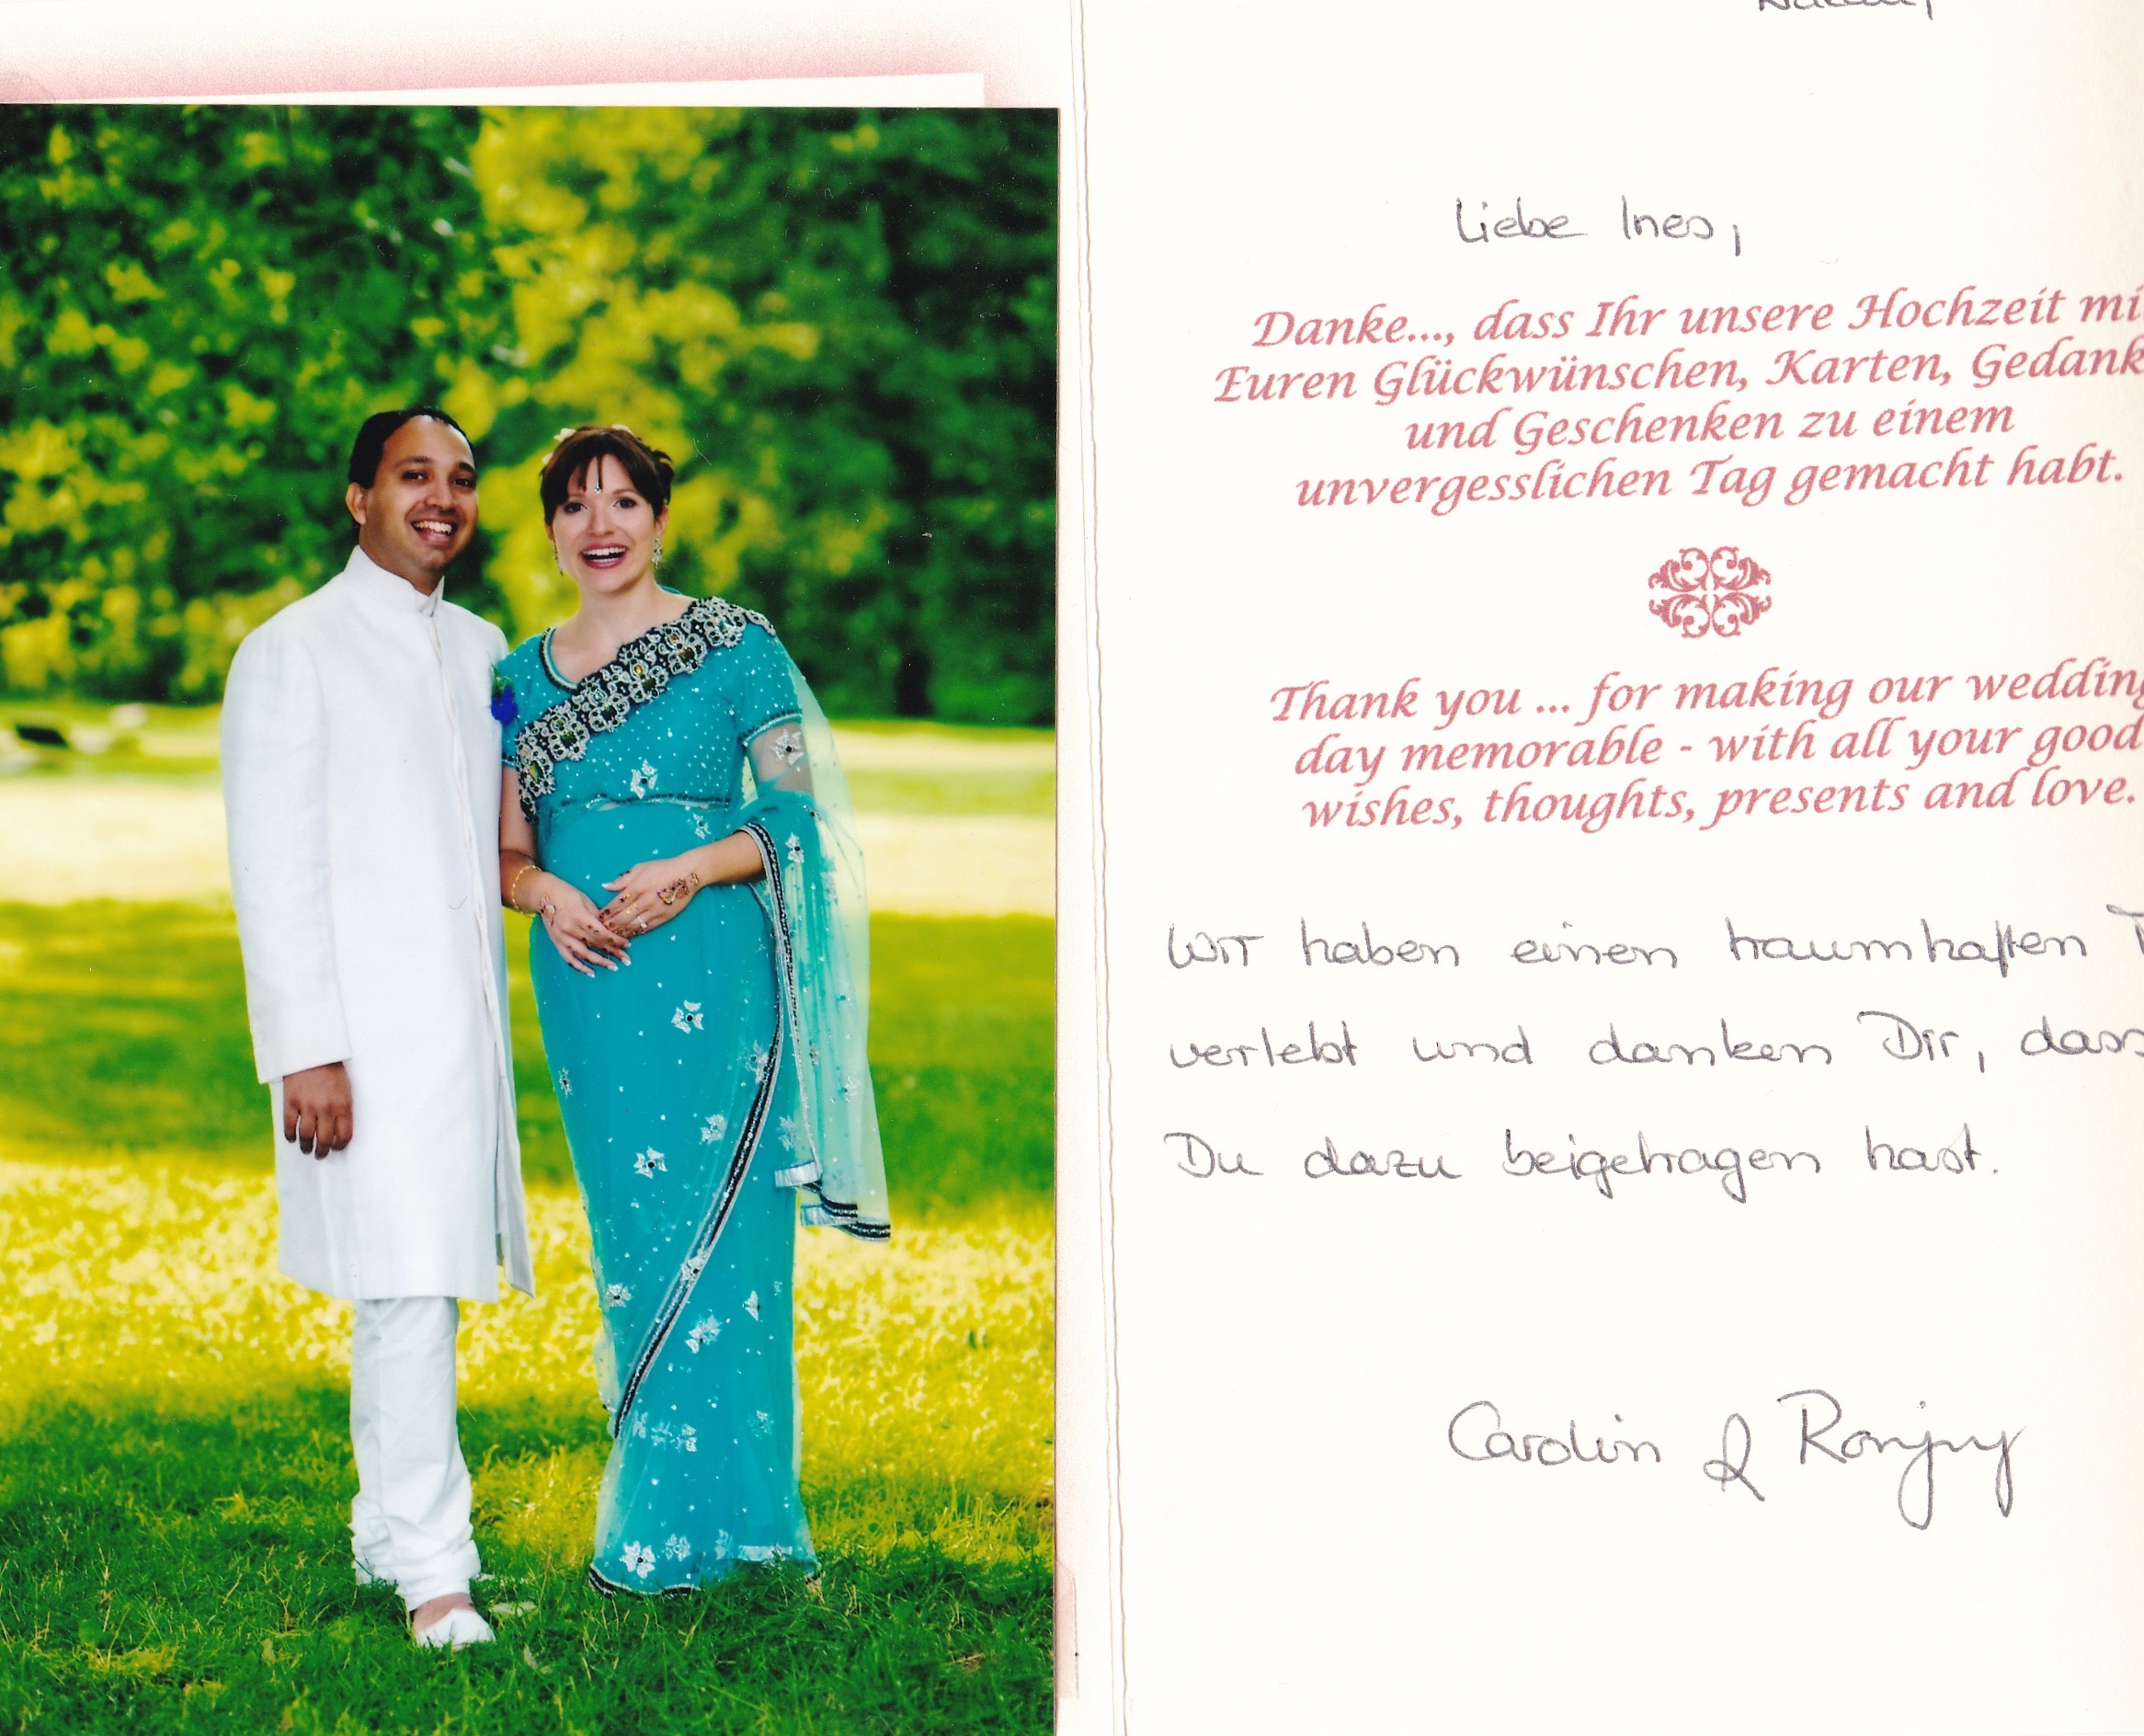 Liebe Ines,
Danke..., dass Ihr unsere Hochzeit mi
Euren Glückwünschen, Karten, Gedank
und Geschenken zu einem
unvergesslichen Tag gemacht habt.
Thank you ... for making our wedding
day memorable - with all your good
wishes, thoughts, presents and love.
Wir haben einen traumhaften T
verlebt und danken Dir, dass
Du dazu beigetragen hast.
Carolin &